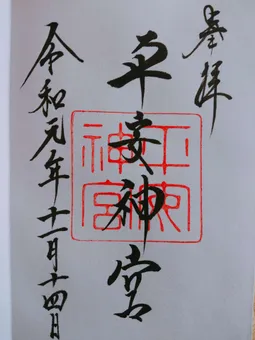 奉拝
平安神宮
平安神宮
令和元年十一月十四日